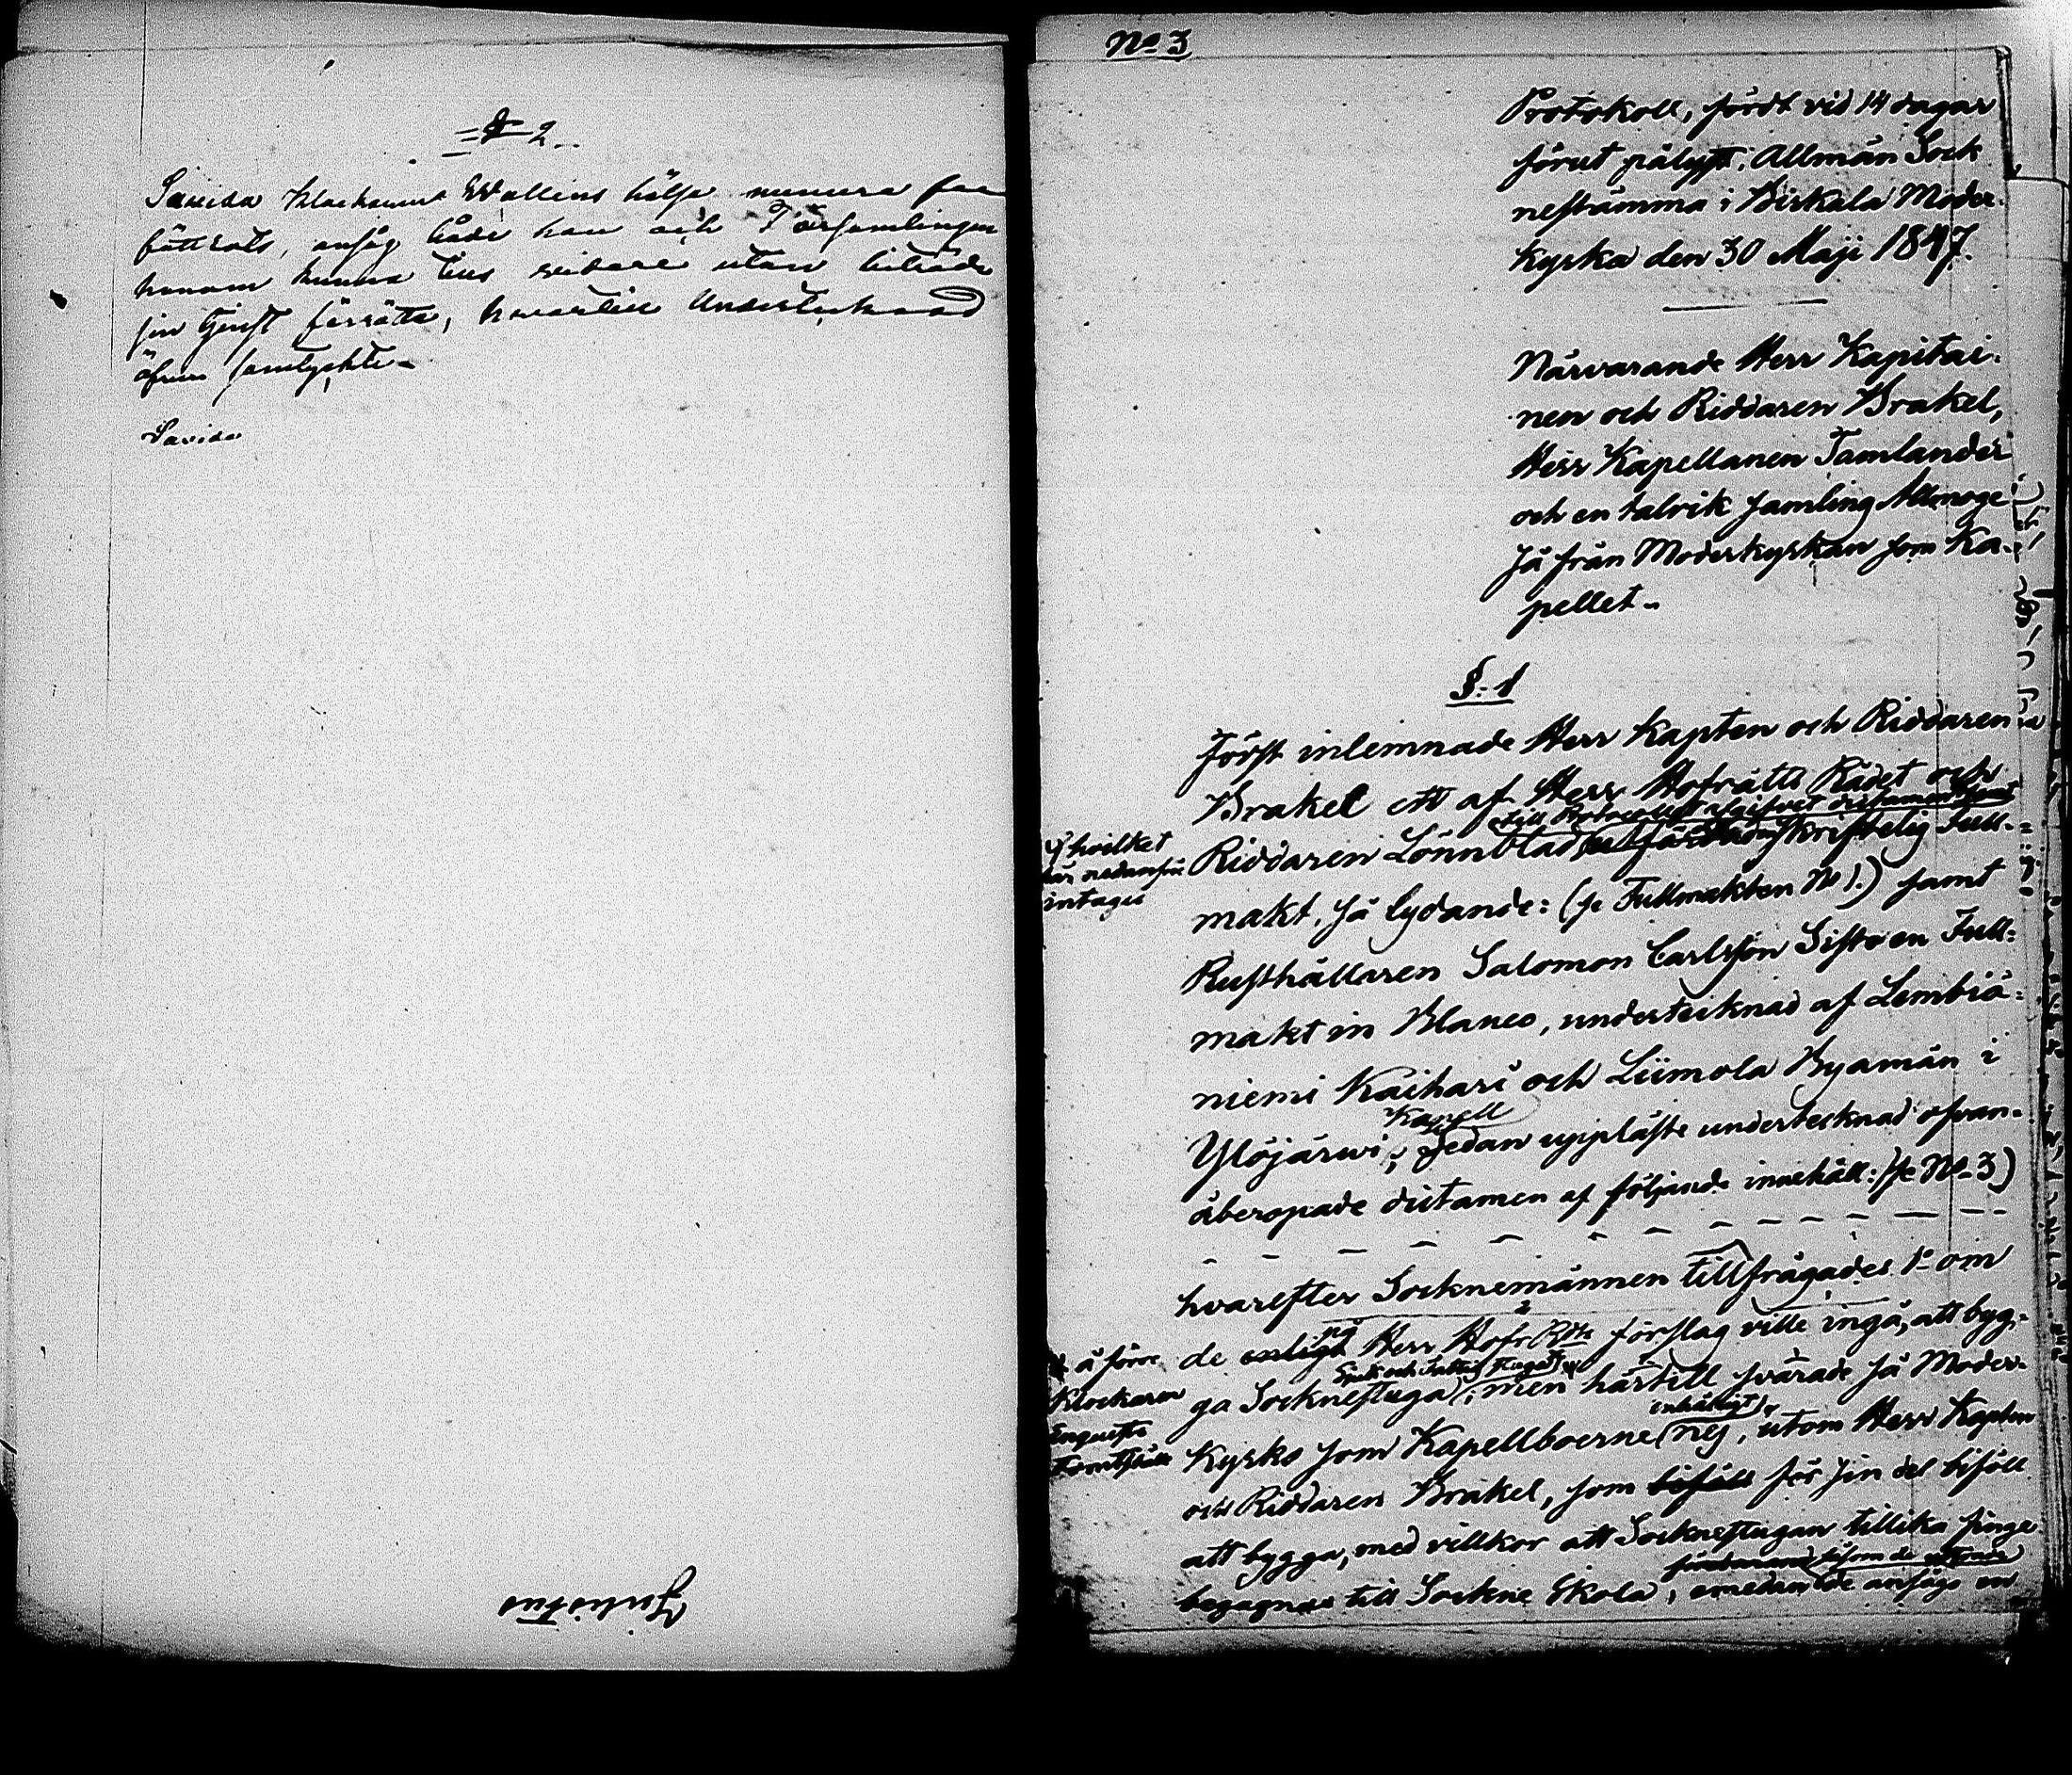 § 2
Sawida Klockarens Wallens hälsa numera för
bättrats, ansåg både han och Församlingen
honom kunna tills vidare utan biträde
sin tjenst förrätta, hvartill Undertecknad
äfven samtyckte
Sawida
No 3
Protokoll, fördt vid 14 dagar
förut pålyst, Allmän Sock
nestämma i Birkala Moder
kyrka den 30 Maji 1847.
Närvarande Herr Kapitai-
nen och Riddaren Brakel,
Herr Kapellanen Tamlander
och en talrik samling Allmoge
så från Moderkyrkan som Ka-
pellet
§. 1
Först inlemnade Herr Kapten och Riddaren
Brakel ett af Herr Hofrätts Rådet och
till Protocollet afgifvet dictamen samt
Riddaren Lönnblad skriftelig Full-
hvilket
här nedanföre
intages
makt, så lydande: (se Fullmakten No 1.) samt
Rusthållaren Salomon Carlsson Sisto en Full-
makt in Blanco, undertecknad af Lembiä-
niemi Kaihari och Liimola Byamän i
Kapell
Ylöjärwi; sedan uppläste undertecknad ofvan-
åberopade dictamen af följande innehåll: (se No 3)
hvarefter Socknemännen tillfrågades 1o om
de enligt på Herr Hofr förslag ville ingå, att byg-
å förre
Klockaren
ga Socknestuga; men härtill svarade så Moder-
enhälligt
Kyrko som Kapellboerne nej, utom Herr Kapten
och Riddaren Brakel, som biföll för sin del biföll
att bygga, med villkor att Socknestugan tillika finge
begagnas till Sockne Skola, emedan de ansågs en